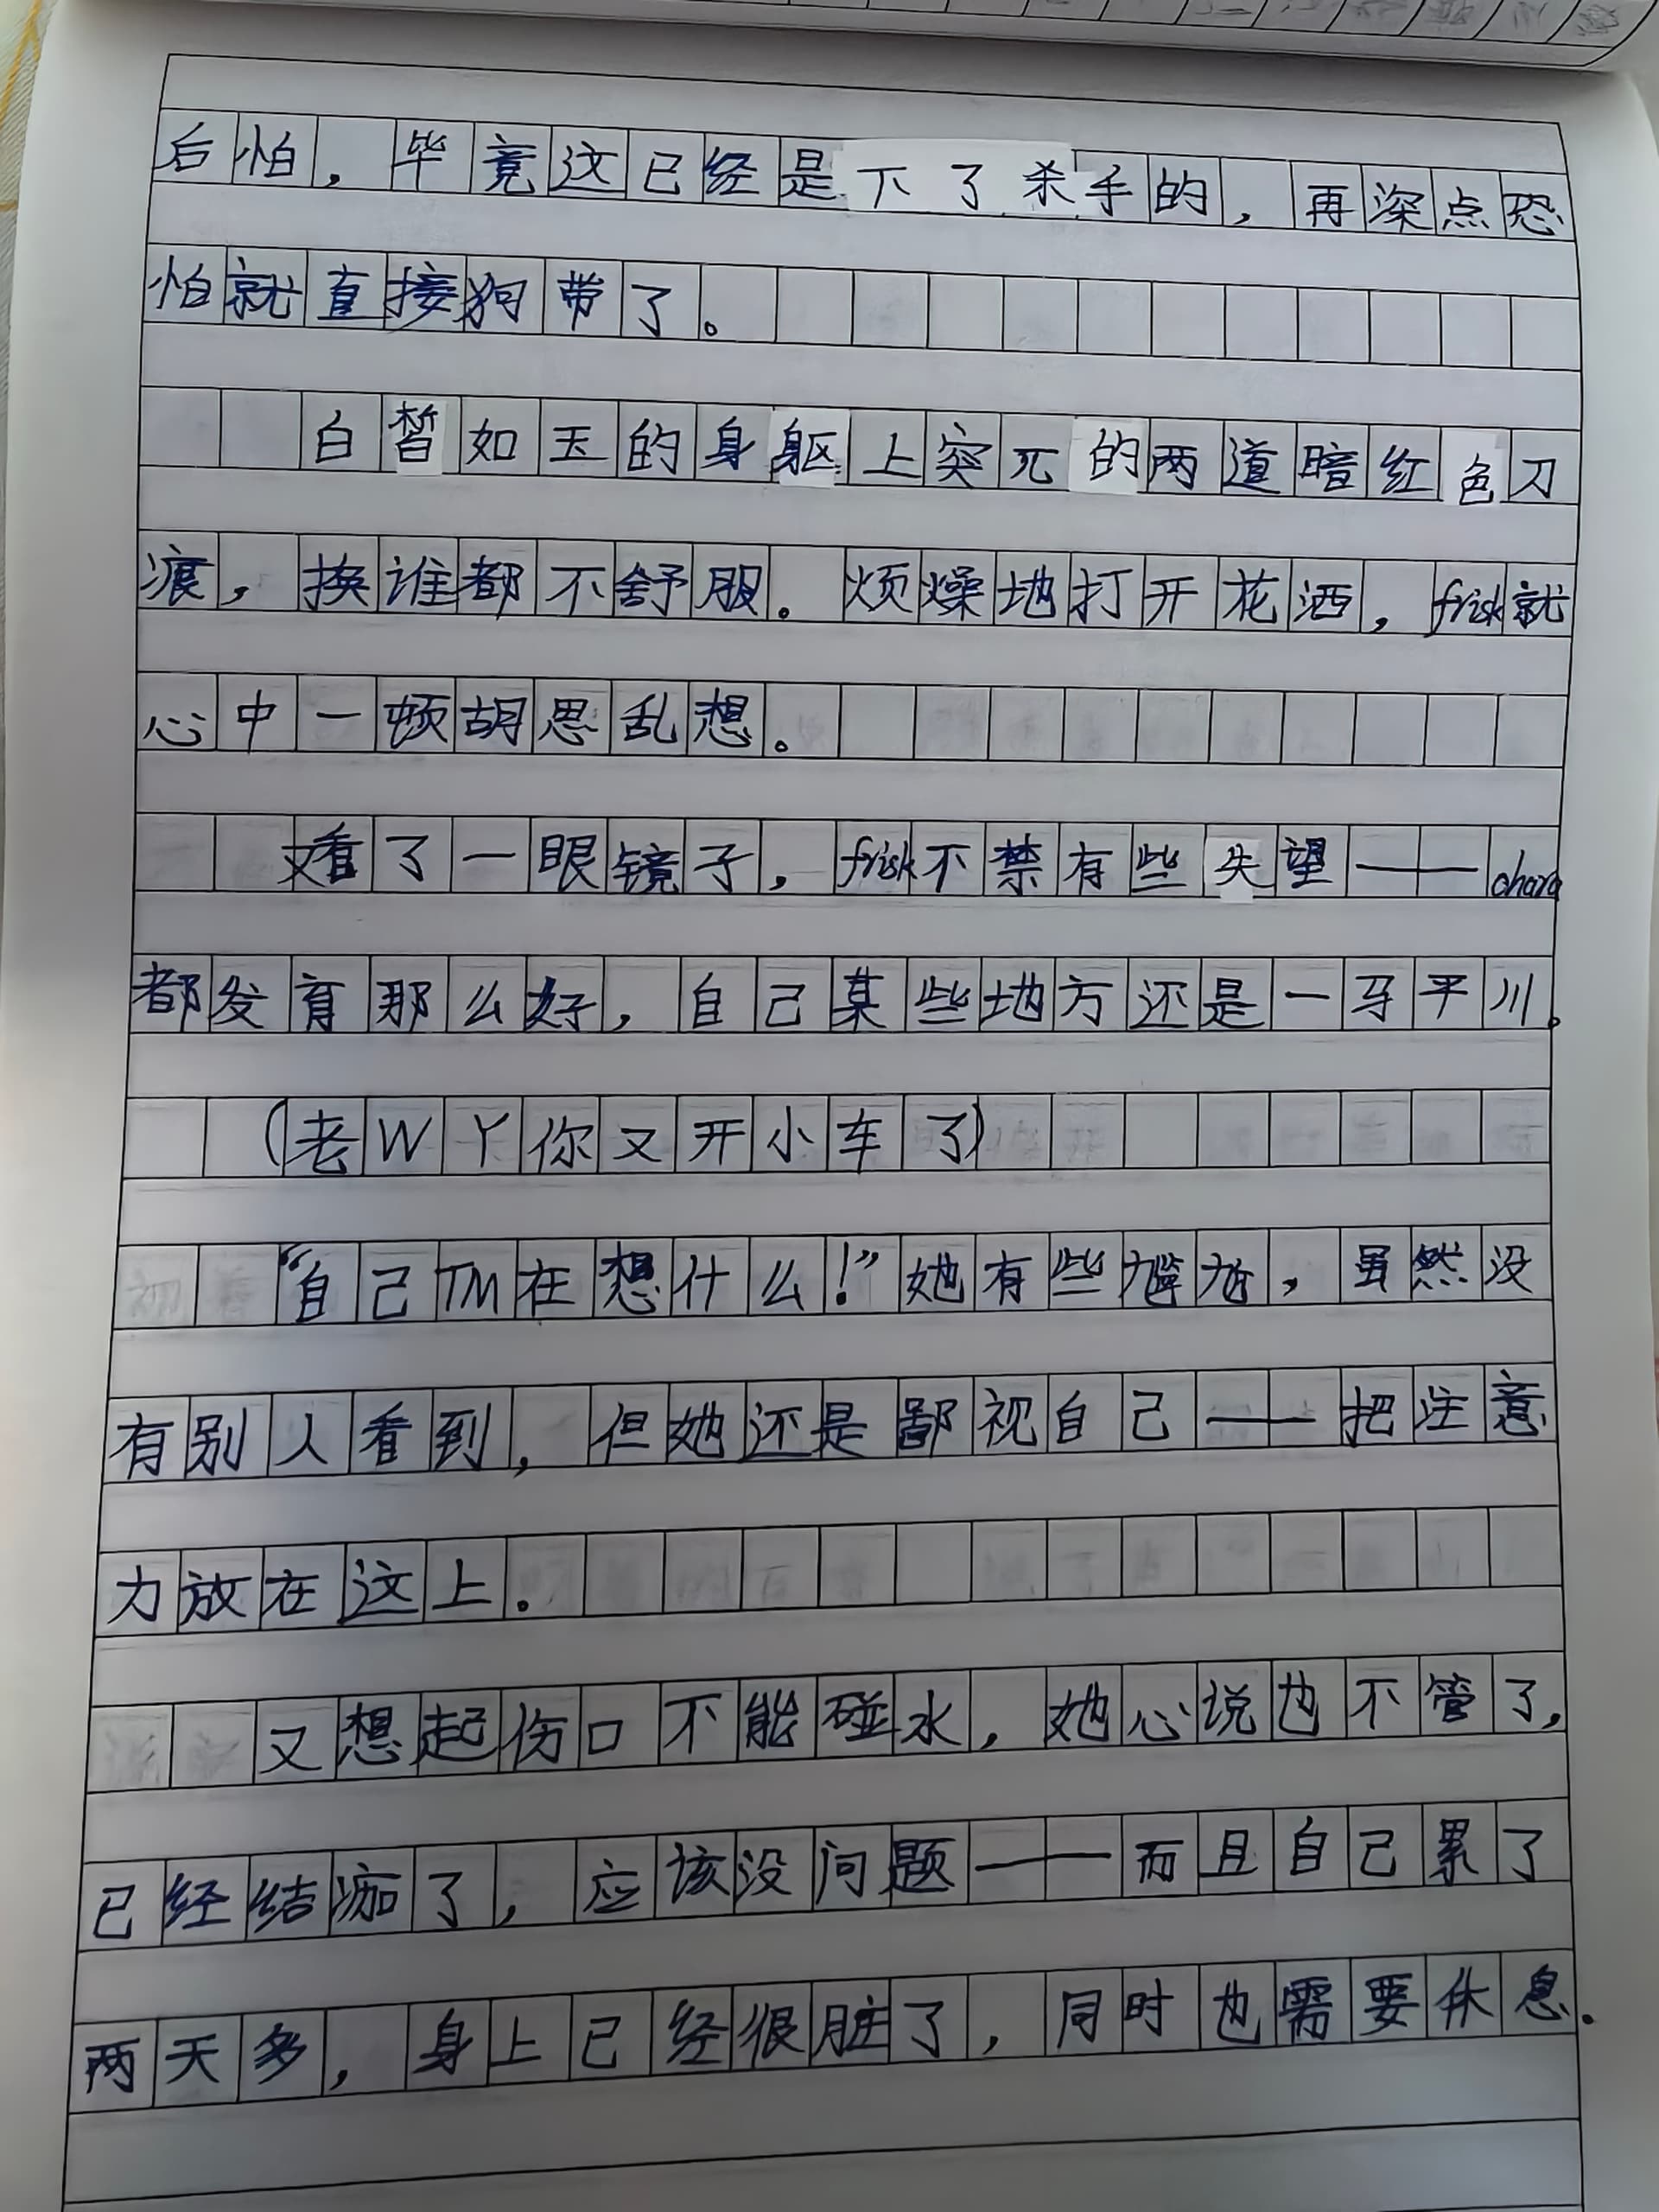 后怕，毕竟这已经是下了杀手的，再深点恐
怕就直接狗带了。
白皙如玉的身躯上突兀的两道暗红色刀
痕，换谁都不舒服。烦燥地打开花洒，frisk就
心中一顿胡思乱想。
又看了一眼镜子，frisk不禁有些失望——chara
都发育那么好，自己某些地方还是一马平川。
（老WY你又开小车了）
“自己TM在想什么！”她有些尴尬，虽然没
有别人看到，但她还是鄙视自己——把注意
力放在这上。
又想起伤口不能碰水，她心说也不管了，
已经结痂了，应该没问题——而且自己累了
两天多，身上已经很脏了，同时也需要休息。